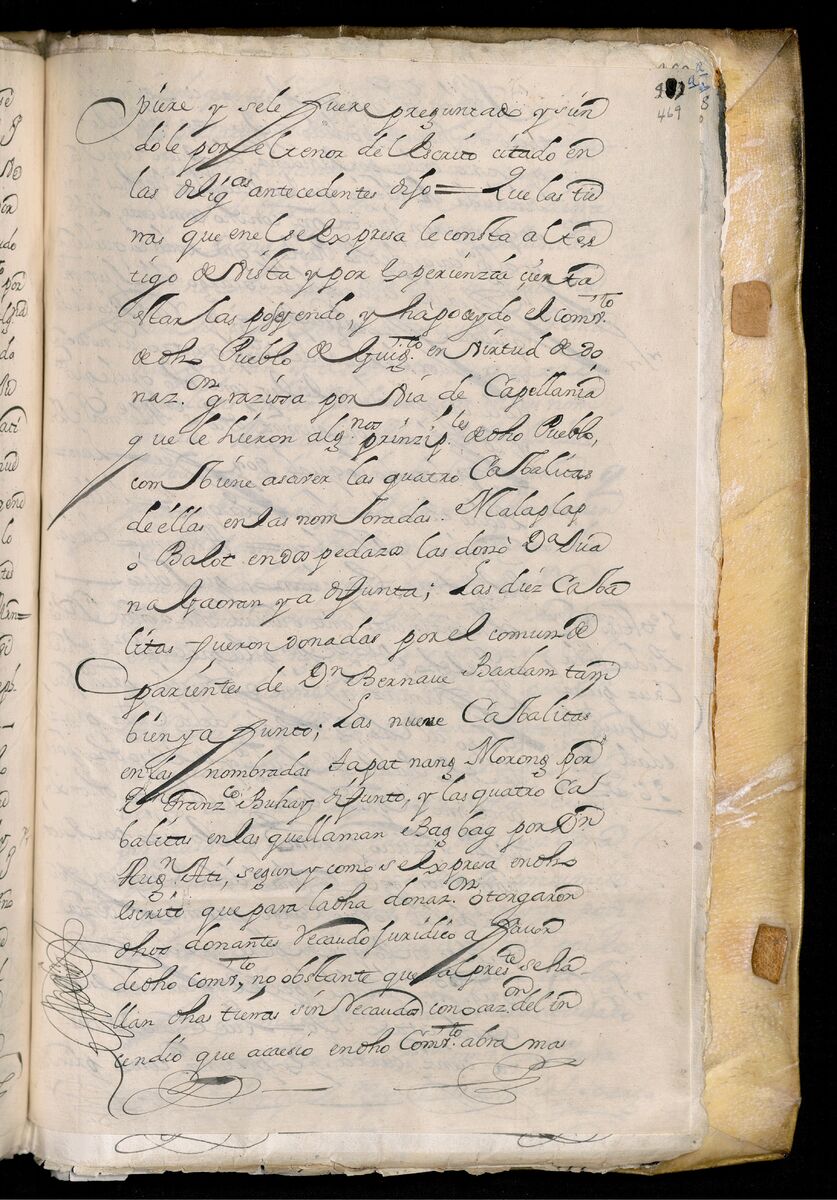 469
8
piere y sele fuere preguntado y sien
dole por el tenor del Escrito citado en
las dilig.as antecedentes dijo = Que las tie
rras que en el se Expresa le consta al tes
tigo de vista y por Experienzia cierta
estarlas poseyendo, y ha poseydo el comv.to
de dho Pueblo de Guig.to en virtud de do
naz.on graziosa por via de Capellania
que le hizieron alg.nos prinzip.les de dho Pueblo,
combiene asaver las quatro Casbalitas
de éllas en las nombradas. Malaplap
ò Balot en dos pedazos las donò D.a Via
na Gaoran ya difunta; Las diez Casba
litas fueron donadas por el comun de
parientes de D.n Bernave Barlam tam
bien ya difunto; Las nueve Casbalitas
en las nombradas tapat nang Moxong por
D. Franz.co Buhay difunto, y las quatro Cas
balitas en las que llaman Bag bag por D.n
Aug.n Ati, segun y como se Expresa en dho
Escrito que para la dha donaz.on otorgaron
dhos donantes Recaudo Juridico a favor
de dho comv.to, no obstante que al pres.te se ha-
llan dhas tierras sin Recaudos con ocaz.on del in
cendio que acaesio en dho Comv.to abra mas